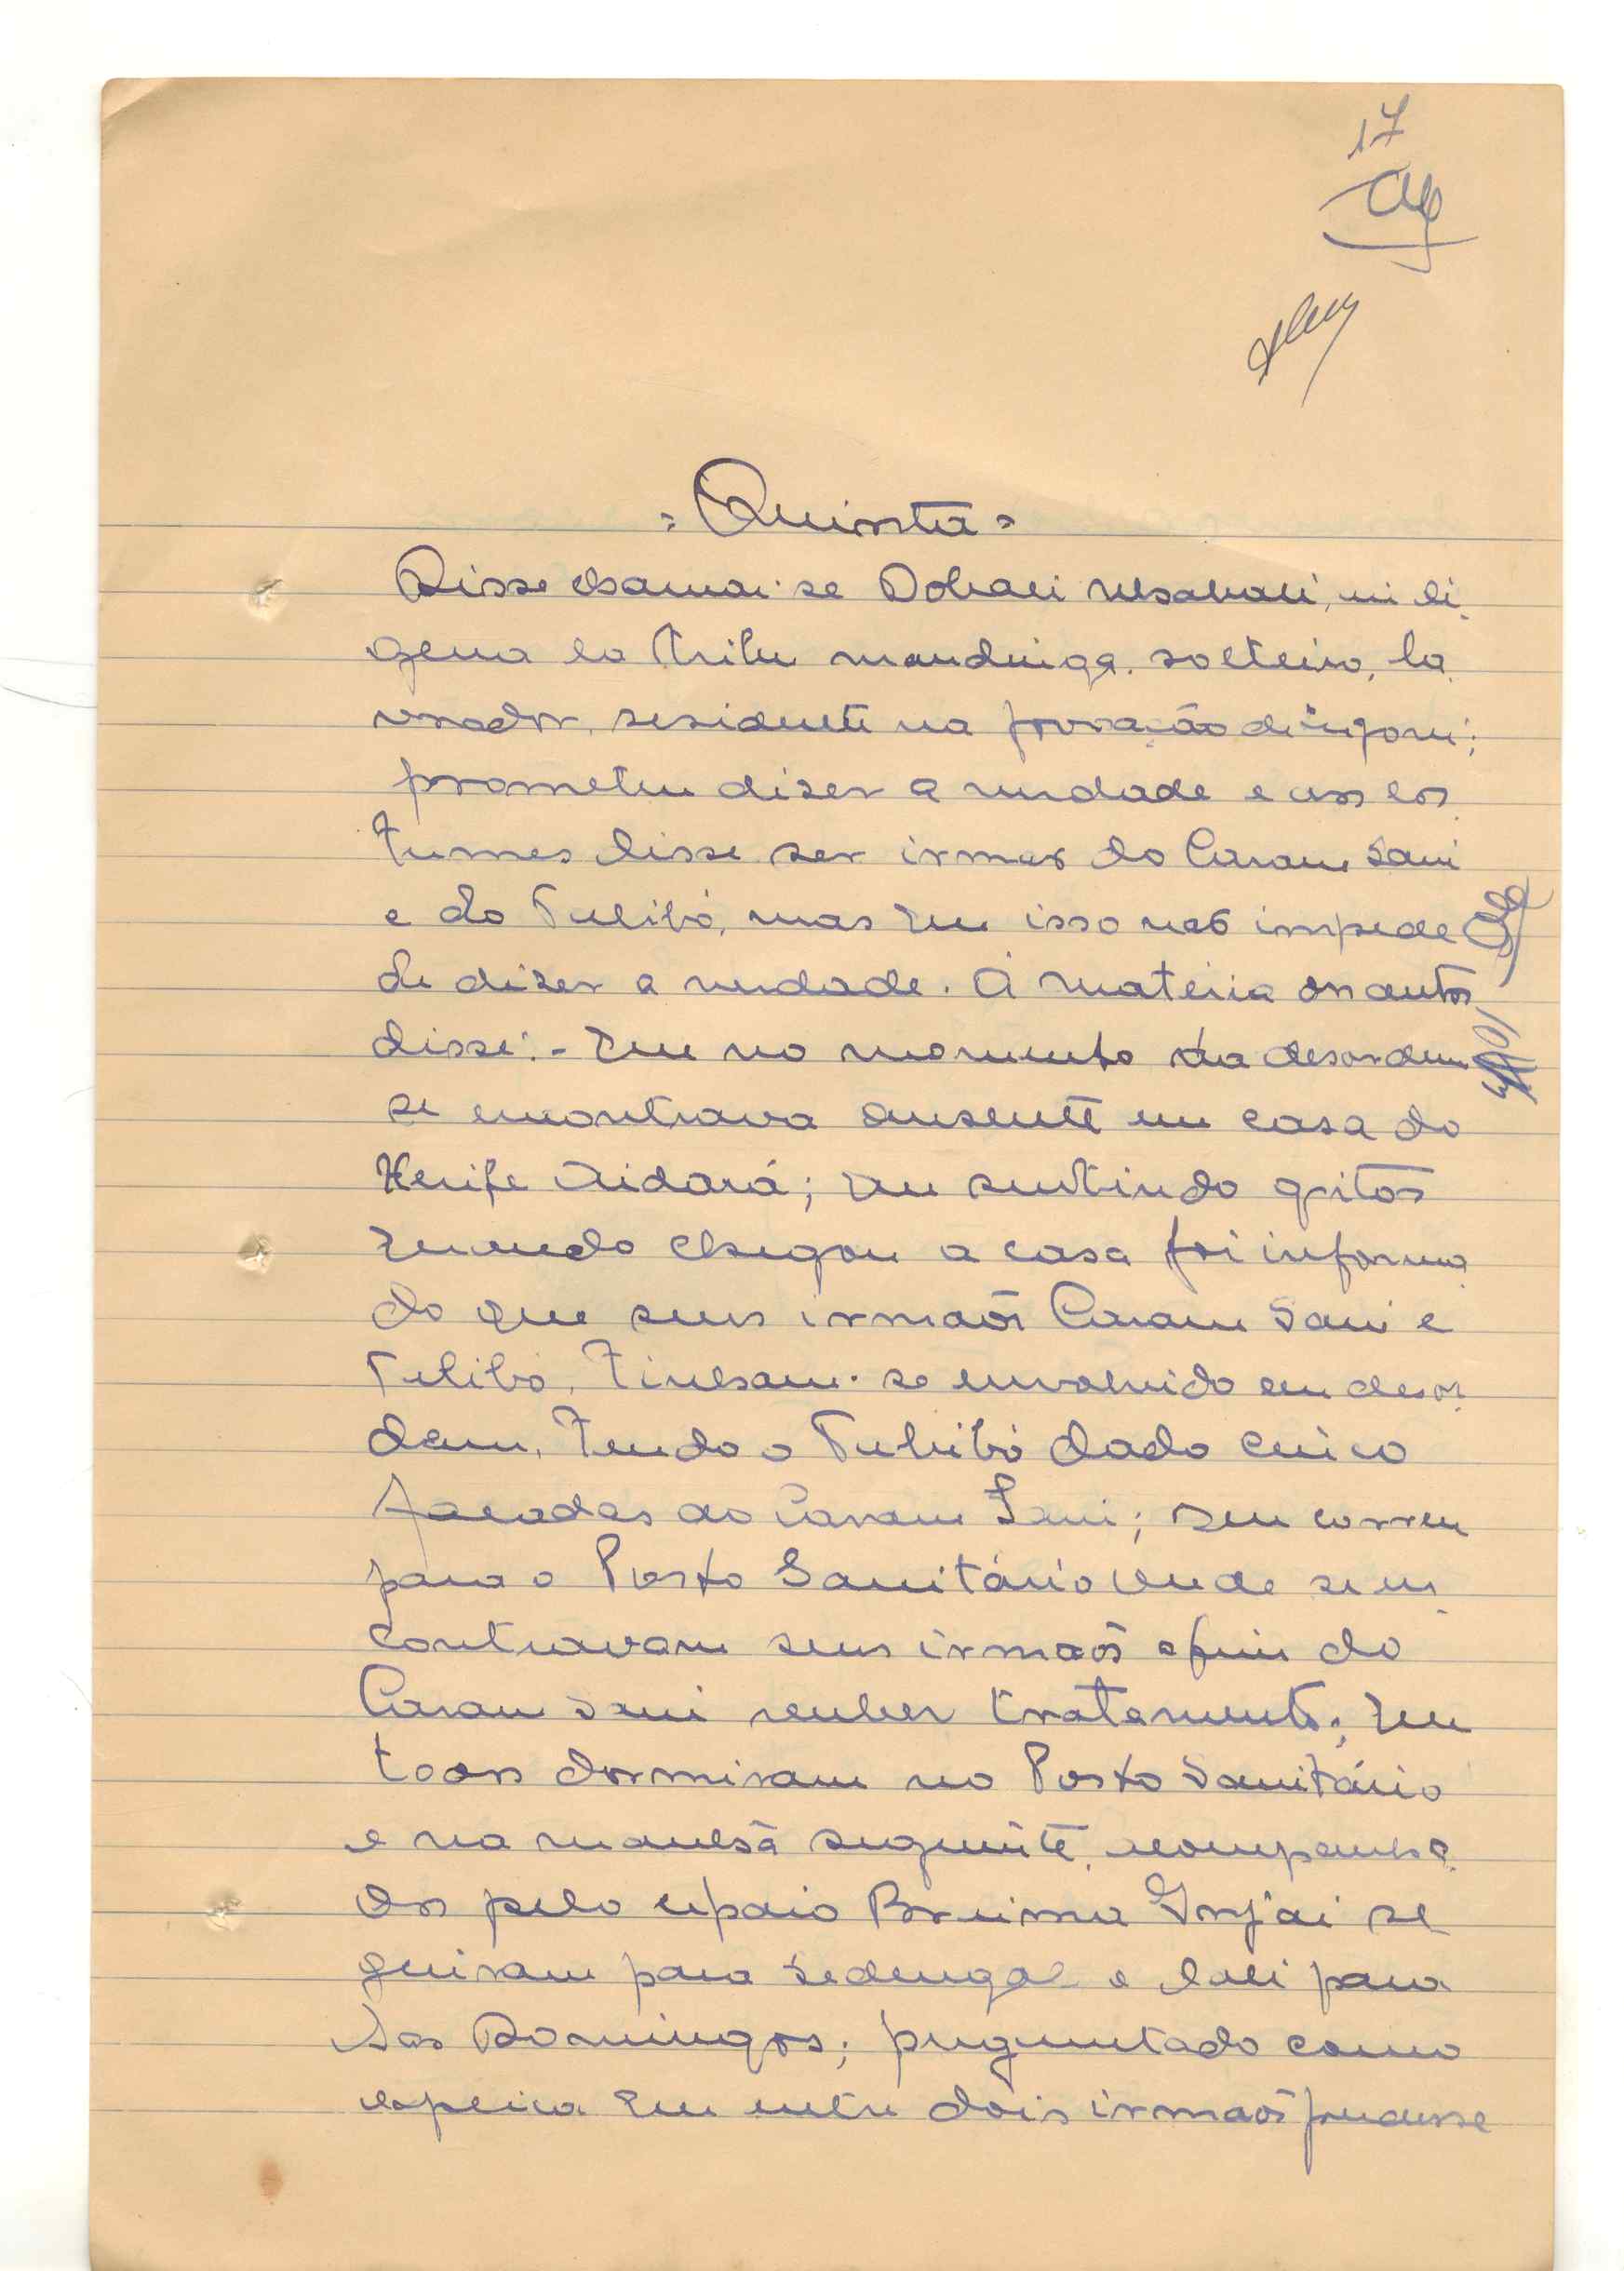 17
= Quinta =
Disse chamar-se Dobali Mhabali, indi-
gena da tribu mandinga, solteiro, la-
vrador, residente na povoação de
prometeu dizer a verdade e aos cos-
tumes disse ser irmão do Caram Sani
e do Tulibó, mas que isso não impede
de dizer a verdade. Á matéria dos autos
disse:- Que no momento da desordem
se encontrava ausente em casa do
Herife Aidará; que sentindo gritos
quando chegou a casa foi informa-
do que seus irmãos Caram Sani e
Tulibó, tinham-se envolvido em desor-
dem, tendo o Tulibó dado cinco
facadas ao Caram Sani; que correu
para o Posto Sanitário onde se en-
contravam seus irmãos afim do
Caram Sani receber tratamento; que
todos dormiram no Posto Sanitário
e na manhã seguinte, acompanha-
dos pelo cipaio Breima Injai se-
guiram para Sedengal e dali para
São Domingos; perguntado como
explica que entre dois irmãos pudesse